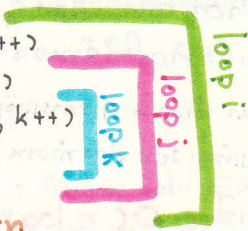 ++)
)
, k++)
loop k
loop j
loop i